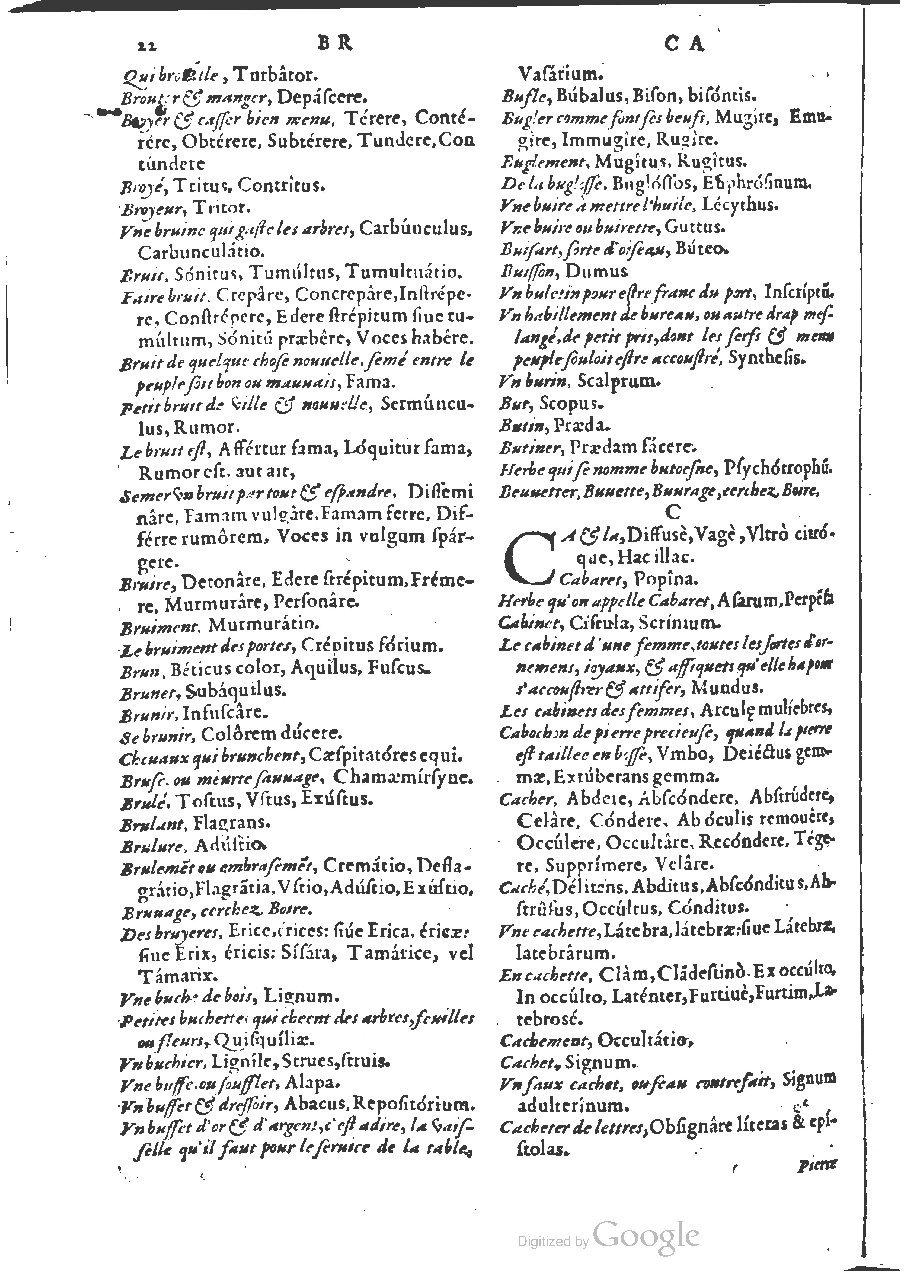 22 BR CA
Qui brouille, Turbâtor.
Brouter & manger, Depáſcere.
Broyer & caſſer bien menu, Térere, Conté-
rére, Obtérere, Subtérere, Tundere, Con
túndere
Broyé, Tritus, Contrîtus.
Broyeur, Tritor.
Vne bruine qui gaſte les arbres, Carbúnculus,
Carbunculátio.
Bruit, Sónitus, Tumúltus, Tumultuátio.
Faire bruit, Crepâre, Concrepâre, Inſtrépe-
re, Conſtrépere, Edere ſtrépitum ſiue tu-
múltum, Sónitú præbêre, Voces habêre.
Bruit de quelque choſe nouuelle, ſemé entre le
peuple ſoit bon ou mauuais, Fama.
Petit bruit de ville & nouuelle, Sermúncu-
lus, Rumor.
Le bruit eſt, Affértur fama, Lóquitur fama,
Rumor eſt, aut ait,
Semer vn bruit par tout & eſpandre, Diſſemi
nâre, Famam vulgâre, Famam ferre, Dif-
férre rumôrem, Voces in vulgum ſpár-
gere.
Bruire, Detonâre, Edere ſtrépitum, Fréme-
re, Murmurâre, Perſonâre.
Bruiment, Murmurátio.
Le bruiment des portes, Crépitus fórium.
Brun, Béticus color, Aquilus, Fuſcus.
Brunet, Subáquilus.
Brunir, Infuſcâre.
Se brunir, Colôrem dúcere.
Cheuaux qui brunchent, Cæſpitatóres equi.
Bruſc, ou meurte ſauuage, Chamæmírſyne.
Brulé, Toſtus, Vſtus, Exúſtus.
Brulant, Flagrans.
Brulure, Adúſtio.
Brulemẽt ou embraſemẽt, Cremátio, Defla-
grátio, Flagrãtia, Vſtio, Adúſtio, Exúſtio,
Bruuage, cerchez Boire.
Des bruyeres, Erice, érices: ſiúe Erica, éricæ:
ſiue Erix, éricis: Síſára, Tamárice, vel
Támarix.
Vne buche de bois, Lignum.
Petites buchettes qui cheent des arbres, feuilles
ou fleurs, Quiſquíliæ.
Vn buchier, Lignîle, Strues, ſtruis.
Vne buffe, ou ſoufflet, Alapa.
Vn buffet & dreſſoir, Abacus, Repoſitórium.
Vn buffet d'or & d'argent, c'eſt adire, la vaiſ-
ſelle qu'il faut pour le ſeruice de la table,
Vaſárium.
Bufle, Búbalus, Biſon, biſóntis.
Bugler comme font ſes beufs, Mugîre, Emu-
gîre, Immugîre, Rugîre.
Buglement, Mugîtus, Rugîtus.
De la bugloſſe, Buglóſſos, Euphróſinum.
Vne buire à mettre l'huile, Lécythus.
Vne buire ou buirette, Guttus.
Buiſart, ſorte d'oiſeau, Búteo.
Buiſſon, Dumus
Vn buletin pour eſtre franc du port, Inſcríptũ.
Vn habillement de bureau, ou autre drap meſ-
langé, de petit pris, dont les ſerfs & menu
peuple ſouloit eſtre accouſtré, Syntheſis.
Vn burin, Scalprum.
But, Scopus.
Butin, Præda.
Butiner, Prædam fácere.
Herbe qui ſe nomme butoeſne, Pſychótrophũ.
Beuuetter, Buuette, Buurage, cerchez, Boire,
C
CA & là, Diffusè, Vagè, Vltrò citró-
que, Hac illac.
Cabaret, Popîna.
Herbe qu'on appelle Cabaret, Aſarum, Perpéſa
Cabinet, Ciſtula, Scrínium.
Le cabinet d'une femme, toutes les ſortes d'or-
nemens, ioyaux, & affiquets qu'elle ha pour
s'accouſtrer & attifer, Mundus.
Les cabinets des femmes, Arculę muliebres,
Cabochon de pierre precieuſe, quand la pierre
eſt taillee en boſſe, Vmbo, Deiéctus gem-
mæ, Extúberans gemma.
Cacher, Abdere, Abſcóndere, Abſtrúdere,
Celâre, Cóndere, Ab óculis remouêre,
Occúlere, Occultâre, Recóndere, Tége-
re, Supprímere, Velâre.
Caché, Délitens, Abditus, Abſcónditus, Ab-
ſtrûſus, Occúltus, Cónditus.
Vne cachette, Látebra, látebræ: ſiue Látebræ,
latebrârum.
En cachette, Clàm, Clãdeſtinò. Ex occúlto,
In occúlto, Laténter, Furtiuè, Furtim, La-
tebrosé.
Cachement, Occultátio,
Cachet, Signum.
Vn faux cachet, ou ſeau contrefait, Signum
adulterînum.
Cacheter de lettres, Obſignâre líteras & epí-
ſtolas.
Pierre
Digitized by Google